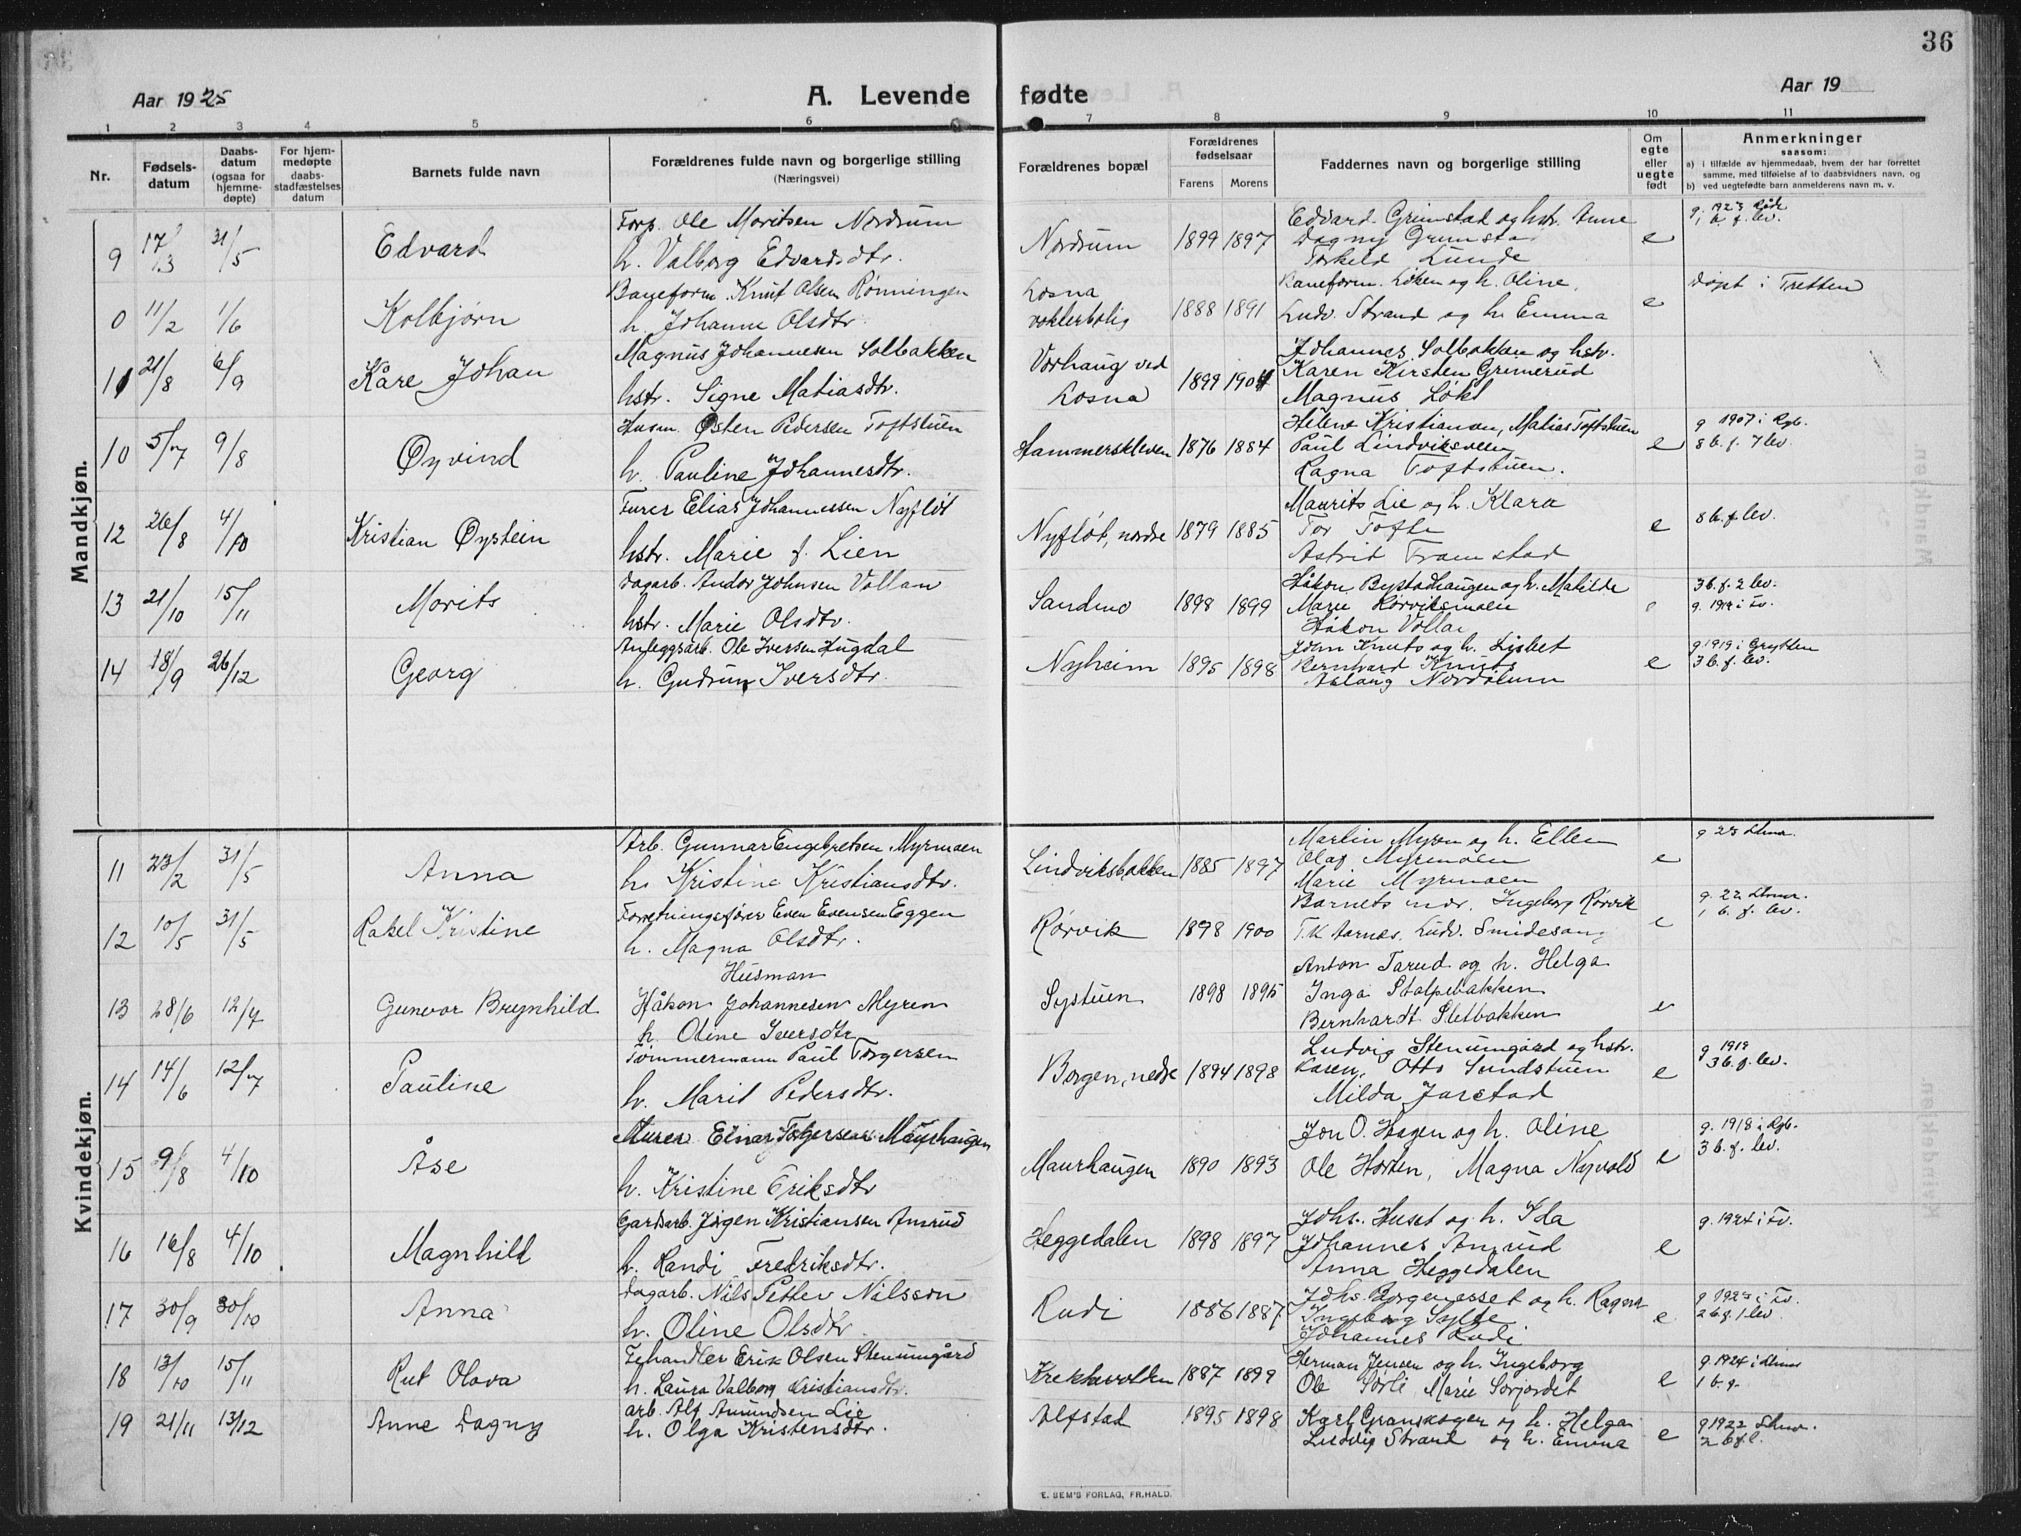 36
Aar 1925
A. Levende fødte
Aar 19
1 2 3 4 5 6 7 8 9 10 11
Nr.
Fødsels-
datum
Daabs-
datum
(ogsaa for
hjemme-
døpte)
For hjem-
medøpte
daabs-
stadfæstelses
datum
Barnets fulde navn
Forældrenes fulde navn og borgerlige stilling
(Næringsvei)
Forældrenes bopæl
Forældrenes
fødselsaar
Farens Morens
Faddernes navn og borgerlige stilling
Om
egte
eller
uegte
født
Anmerkninger
saasom:
a) i tilfælde av hjemmedaab, hvem der har forrettet
samme, med tilføielse af to daabsvidners navn, og
b) ved uegtefødte barn anmelderens navn m. v.
Mandkjøn.
9 17/3 31/5 Edvard
Forp. Ole Moritsen Nordrum
h. Valborg Edvardsdtr.
Nordrum 1899 1897
Edvard Grimstad og hstr. Anne
Dagny Grimstad
Torkeld Lunde
e
g. 1923
1 b. f. lev.
0 11/2 1/6 Kolbjørn
Baneform. Knut Olsen Rønningen
h. Johanne Olsdtr.
Losna
vokterbolig
1888 1891
Baneform. Løken og h. Oline,
Ludv. Strand og h. Emma
e
døpt i Tretten
11 21/8 6/9 Kåre Johan
Magnus Johannesen Solbakken
hstr. Signe Matiasdtr.
Vorhaug ved
Losna
1899 1904
Johannes Solbakken og hstr.
Karen Kirsten Grimerud
Magnus Løkt
10 5/7 9/8 Øyvind
Husm. Østen Pedersen Toftstuen
h. Pauline Johannesdtr.
Hammerskleven 1876 1884
Helene Kristiansen, Matias Toftstuen
Paul Lindviksveen
Ragna Toftstuen.
e
g 1907 i Rgb.
8 b. f. 7 lev.
12 26/8 4/10 Kristian Øystein
Furer Elias Johannessen Nyfløt
hstr. Marie f. Lien
Nyfløt, nordre 1879 1885
Maurits Lie og h. Klara
Tor Tofte
Astrid Tramstad
e
8 b. f. lev.
13 21/10 15/11 Morits
dagarb. Andor Johnsen Vollan
hstr. Marie Olsdtr.
Sandmo 1898 1899
Håkon Bystadhaugen og h. Matilde
Marie Rørviksmoen
Håkon Vollan
e
3 b. f. 2 lev.
g. 1919 i Fv.
14 18/9 26/12 Georg
Anleggsarb. Ole Iversen Hugdal
h. Gudrun Iversdtr.
Nyheim 1895 1898
John Knuts og h. Lisbet
Bernhard Knuts
Aslaug Nordalum
e
g 1919 i Grytten
3 b. f. lev.
Kvindekjøn.
11 23/2 31/5 Anna
Arb. Gunnar Engebretsen Myrmoen
h. Kristine Kristiansdtr.
Lindviksbakken 1885 1897
Martin Myren og h. Ellen
Olaf Myrmoen
Marie Myrmoen
e
g 23
12 10/5 31/5 Rakel Kristine
Forretningsfører Even Evensen Eggen
h. Magna Olsdtr.
Rørvik 1898 1900
Barnets mor, Ingeborg Rørvik
T. K. Aarnes. Ludv. Smidesang
e
g. 22
1 b. f. lev.
13 28/6 12/7 Gunvor Brynhild
Husman
Håkon Johannesen Myren
h. Oline Iversdtr.
Systuen 1898 1895
Anton Tarud og h. Helga
Inga Stalpebakken
Bernhardt Sletbakken
e
14 14/6 12/7 Pauline
Tømmermann Paul Torgersen
h. Marit Pedersdtr.
Borgen, nedre 1894 1898
Ludvig Stenumgård og hstr.
Karen, Otto Sundstuen
Milda Jarstad
e
g 1919
3 b. f. lev.
15 9/8 4/10 Åse
Murer Einar Torgersen Maurhaugen
h. Kristine Eriksdtr
Maurhaugen 1890 1893
Jon O. Hagen og h. Oline
Ole Horten, Magna Nyvold
e
g. 1918 i Rgb.
3 b. f. lev.
16 16/8 4/10 Magnhild
Gardsarb. Jørgen Kristiansen Amrud
h. Randi Fredriksdtr.
Heggedalen 1898 1897
Johs. Huset og h. Ida
Johannes Amrud
Anna Heggedalen
e
g. 1924 i Fv.
17 30/9 30/10 Anna
dagarb. Nils Petter Nilsson
h. Oline Olsdtr.
Rudi 1886 1887
Johs. Borgenesset og h. Ragna
Ingeborg Sylte
Johannes Rudi
e
g 1923 i Fv.
2 b. f. 1 lev
18 13/10 15/11 Rut Olava
Fehandler Erik Olsen Stenumgård
h. Laura Valborg Kristiansdtr.
Krekkevolken 1887 1899
Herman Jensen og h. Ingeborg
Ole Sørli Marie Sørjordet
e
g. 1924 i
1 b. g.
19 21/11 13/12 Anne Dagny
arb. Alf Amundsen Lie
h. Olga Kristensdtr.
Alfstad 1895 1898
Karl Granskogen og h. Helga
Ludvig Strand og h. Emma
e
g 1922
2 b f l.
E. SEM'S FORLAG, FR.HALD.